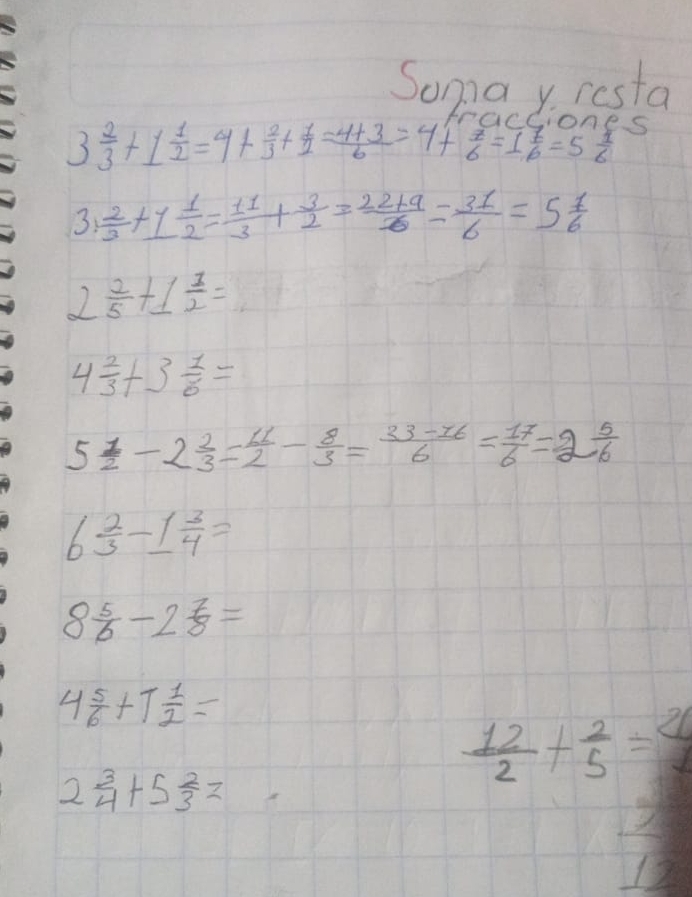 Suma y resta
fracciones
3 2/3 + 1 1/2 = 4 + 2/3 + 1/2 = 4+3/6 = 4 + 7/6 = 1 1/6 = 5 1/6
3 2/3 + 1 1/2 = 11/3 + 3/2 = 22+9/6 = 31/6 = 5 1/6
2 2/5 + 1 1/2 =
4 2/3 + 3 1/6 =
5 1/2 - 2 2/3 = 11/2 - 8/3 = 33-16/6 = 17/6 = 2 5/6
6 2/3 - 1 3/4 =
8 5/6 - 2 7/8 =
4 5/6 + 1 1/2 =
12/2 + 2/5 =
2 3/4 + 5 2/3 =
12